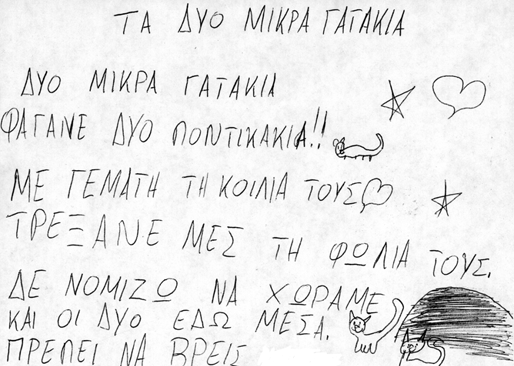 ΤΑ ΔΥΟ ΜΙΚΡΑ ΓΑΤΑΚΙΑ
ΔΥΟ ΜΙΚΡΑ ΓΑΤΑΚΙΑ
ΦΑΓΑΝΕ ΔΥΟ ΠΟΝΤΙΚΑΚΙΑ!!
ΜΕ ΓΕΜΑΤΗ ΤΗ ΚΟΙΛΙΑ ΤΟΥΣ
ΤΡΕΞΑΝΕ ΜΕΣ ΤΗ ΦΩΛΙΑ ΤΟΥΣ.
ΔΕ ΝΟΜΙΖΩ ΝΑ ΧΩΡΑΜΕ
ΚΑΙ ΟΙ ΔΥΟ ΕΔΩ ΜΕΣΑ.
ΠΡΕΠΕΙ ΝΑ ΒΡΕΙΣ